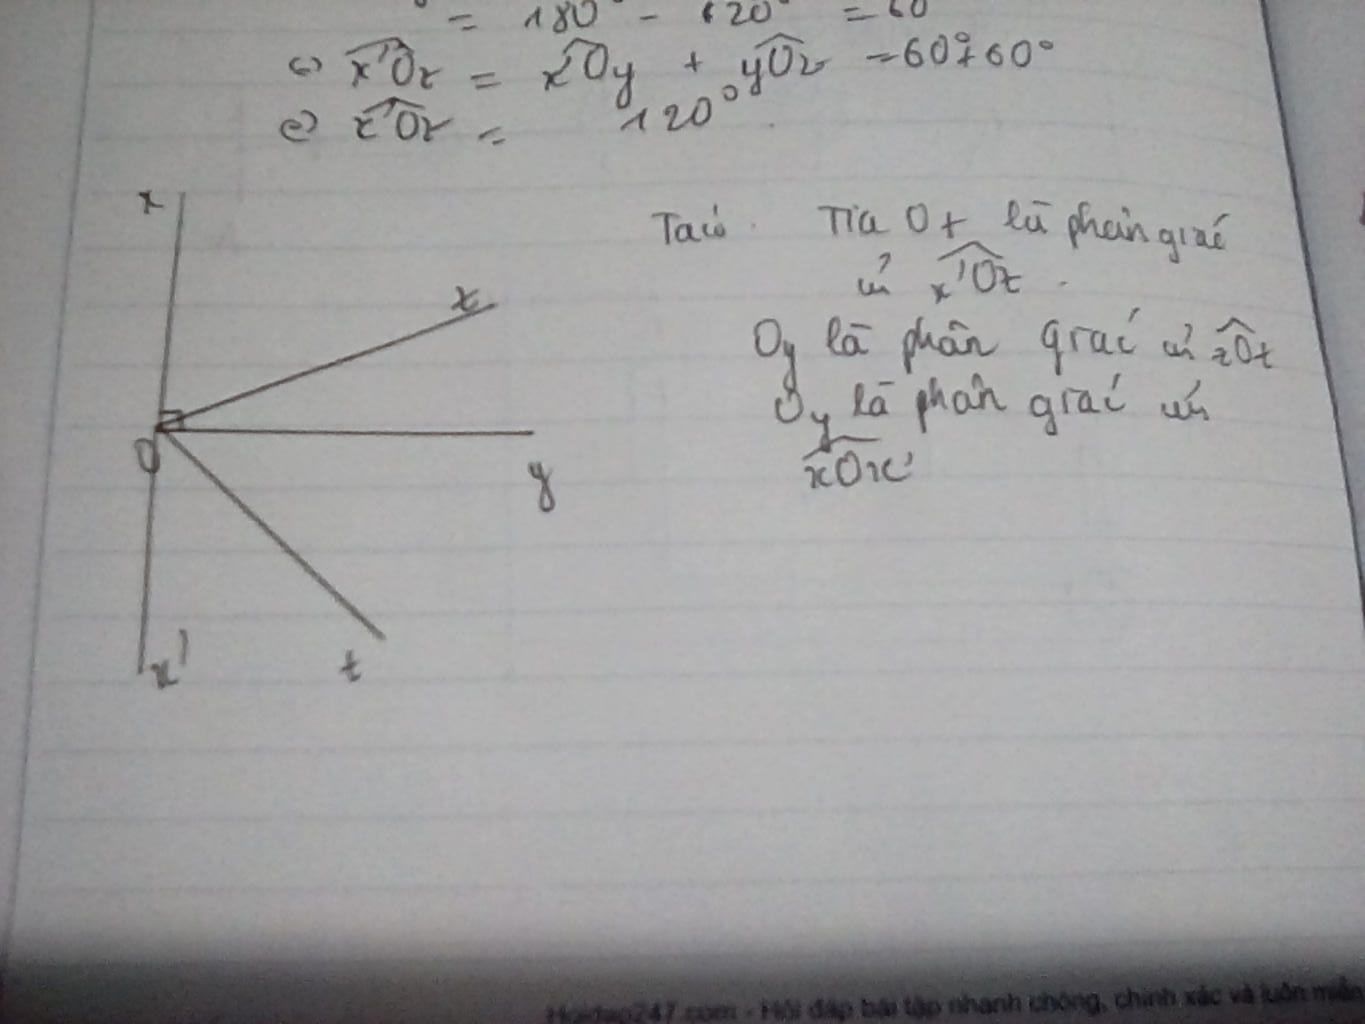 = 180° - 120° = 60
c) x'Oz = x'Oy + yOz = 60°+60°
c) z'Oz = 120°.
x
z
Ta có. Tia Ot là phân giác
x'Oz.
Oy là phân giác zOt
Oy là phân giác
O
y
xOx'
x'
t
Hoidap247.com - Hỏi đáp bài tập nhanh chóng, chính xác và luôn miễn